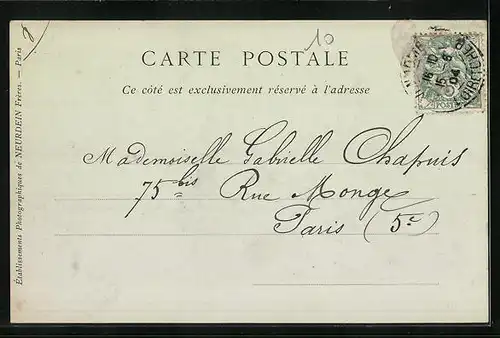 8
10
CARTE POSTALE
Ce côté est exclusivement réservé à l'adresse
Mademoiselle Gabrielle Chapuis
75 bis Rue Monge
Paris (5e)
Établissements Photographiques de NEURDEIN Frères. — Paris